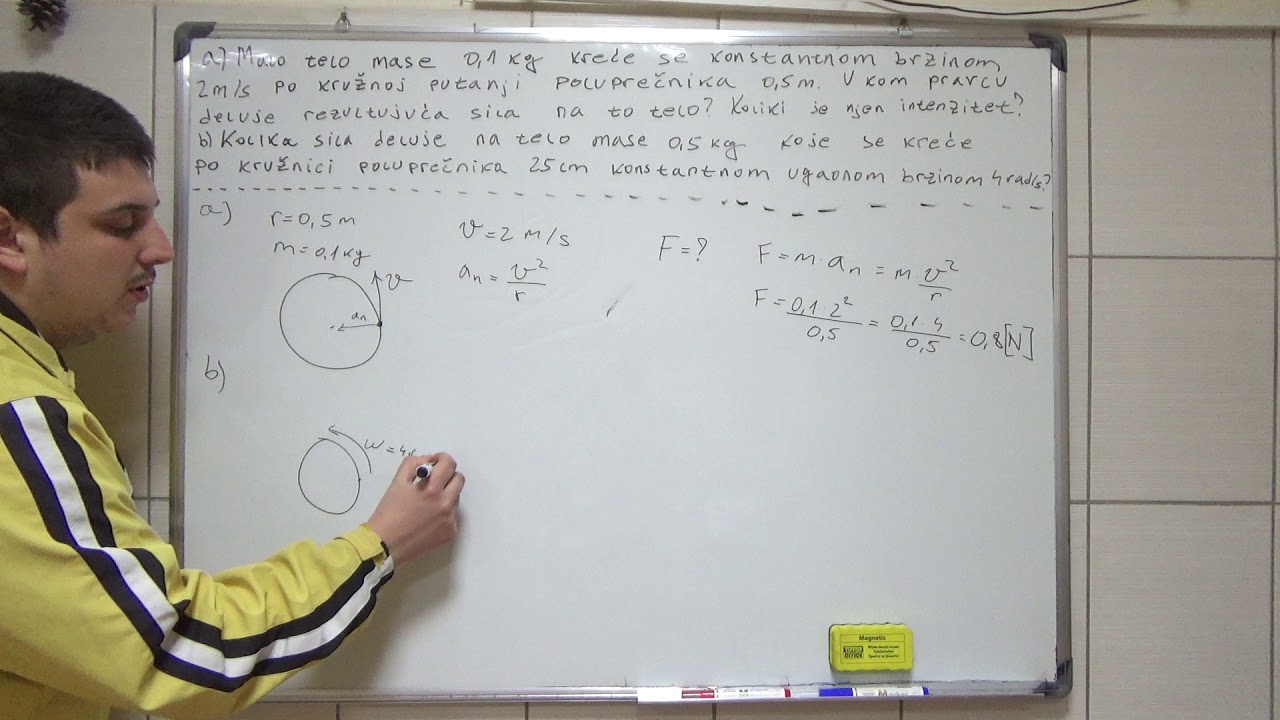 a) Malo telo mase 0,1 kg kreće se konstantnom brzinom
2m/s po kružnoj putanji poluprečnika 0,5m. U kom pravcu
deluje rezultujuća sila na to telo? Koliki je njen intenzitet?
b) Kolika sila deluje na telo mase 0,5 kg koje se kreće
po kružnici poluprečnika 25cm konstantnom ugaonom brzinom 4 rad/s?
a)
r=0,5 m
m=0,1 kg
v
an
v=2 m/s
an = v²/r
F=?
F=m·an = m v²/r
F = 0,1·2²/0,5 = 0,1·4/0,5 = 0,8[N]
b)
ω=4
Magnetic